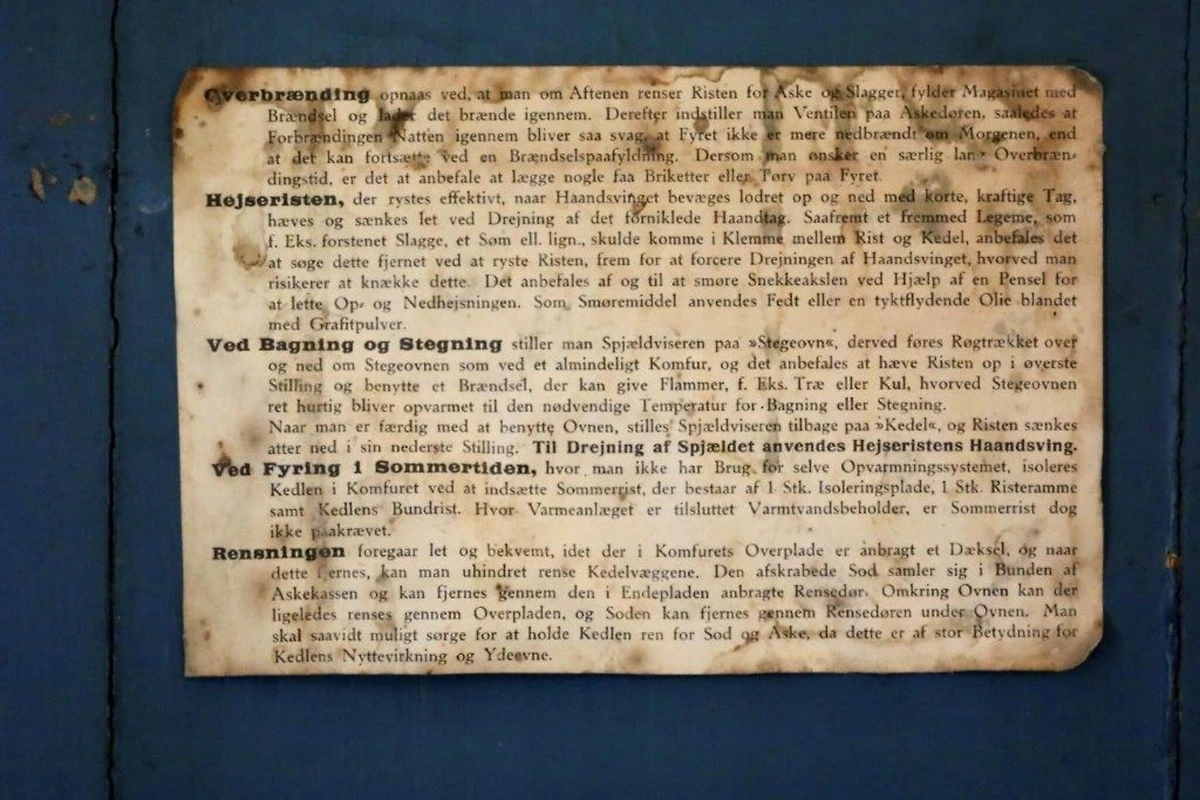 Overbrænding opnaas ved, at man om Aftenen renser Risten for Aske og Slagger, fylder Magasinet med
Brændsel og lader det brænde igennem. Derefter indstiller man Ventilen paa Askedøren, saaledes at
Forbrændingen Natten igennem bliver saa svag, at Fyret ikke er mere nedbrændt om Morgenen, end
at det kan fortsætte ved en Brændselspaafyldning. Dersom man ønsker en særlig lang Overbræn-
dingstid, er det at anbefale at lægge nogle faa Briketter eller Tørv paa Fyret
Hejseristen, der rystes effektivt, naar Haandsvinget bevæges lodret op og ned med korte, kraftige Tag,
hæves og sænkes let ved Drejning af det forniklede Haandtag. Saafremt et fremmed Legeme, som
f. Eks. forstenet Slagge, et Søm ell. lign., skulde komme i Klemme mellem Rist og Kedel, anbefales det
at søge dette fjernet ved at ryste Risten, frem for at forcere Drejningen af Haandsvinget, hvorved man
risikerer at knække dette. Det anbefales af og til at smøre Snekkeakslen ved Hjælp af en Pensel for
at lette Op- og Nedhejsningen. Som Smøremiddel anvendes Fedt eller en tyktflydende Olie blandet
med Grafitpulver.
Ved Bagning og Stegning stiller man Spjældviseren paa »Stegeovn«, derved føres Røgtrækket over
og ned om Stegeovnen som ved et almindeligt Komfur, og det anbefales at hæve Risten op i øverste
Stilling og benytte et Brændsel, der kan give Flammer, f. Eks. Træ eller Kul, hvorved Stegeovnen
ret hurtig bliver opvarmet til den nødvendige Temperatur for Bagning eller Stegning.
Naar man er færdig med at benytte Ovnen, stilles Spjældviseren tilbage paa »Kedel«, og Risten sænkes
atter ned i sin nederste Stilling. Til Drejning af Spjældet anvendes Hejseristens Haandsving.
Ved Fyring i Sommertiden, hvor man ikke har Brug for selve Opvarmningssystemet, isoleres
Kedlen i Komfuret ved at indsætte Sommerrist, der bestaar af 1 Stk. Isoleringsplade, 1 Stk. Risteramme
samt Kedlens Bundrist. Hvor Varmeanlæget er tilsluttet Varmtvandsbeholder, er Sommerrist dog
ikke paakrævet.
Rensningen foregaar let og bekvemt, idet der i Komfurets Overplade er anbragt et Dæksel, og naar
dette fjernes, kan man uhindret rense Kedelvæggene. Den afskrabede Sod samler sig i Bunden af
Askekassen og kan fjernes gennem den i Endepladen anbragte Rensedør. Omkring Ovnen kan der
ligeledes renses gennem Overpladen, og Soden kan fjernes gennem Rensedøren under Ovnen. Man
skal saavidt muligt sørge for at holde Kedlen ren for Sod og Aske, da dette er af stor Betydning for
Kedlens Nyttevirkning og Ydeevne.